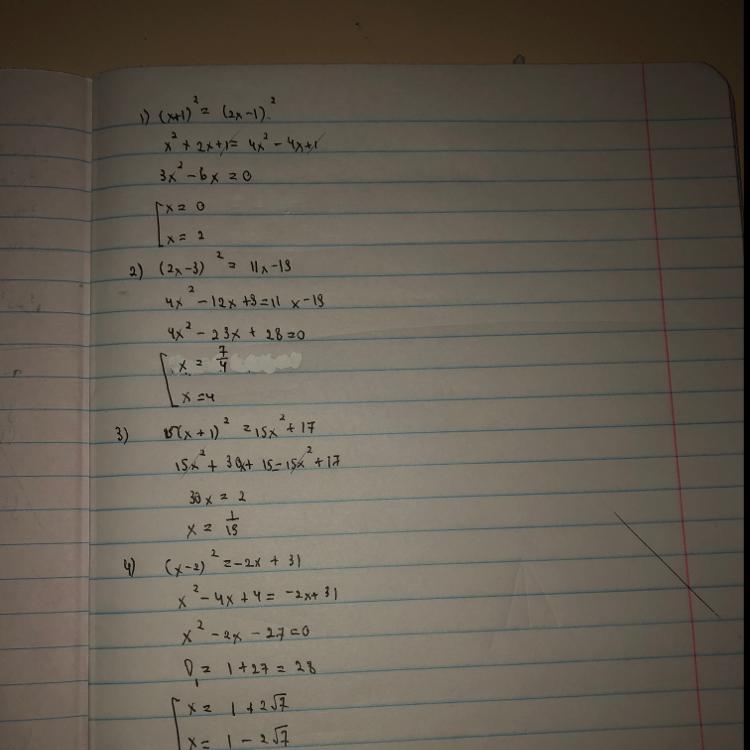 1) (x+1)² = (2x-1)²
x² + 2x+1 = 4x² - 4x+1
3x² - 6x = 0
[x = 0
x = 2
2) (2x-3)² = 11x-19
4x² - 12x + 9 = 11x - 19
4x² - 23x + 28 = 0
[x = 7/4
x = 4
3) 15(x+1)² = 15x² + 17
15x² + 30x + 15 = 15x² + 17
30x = 2
x = 1/15
4) (x-2)² = -2x + 31
x² - 4x + 4 = -2x + 31
x² - 2x - 27 = 0
D₁ = 1 + 27 = 28
[x = 1 + 2√7
x = 1 - 2√7